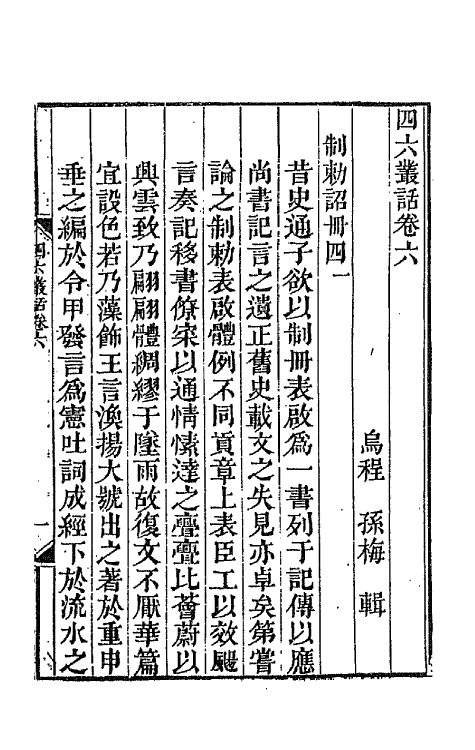 四六叢話卷六
烏程　孫梅　輯
制勅詔冊四一
昔史通子欲以制冊表啟爲一書列于記傳以應
尚書記言之遺正舊史載文之失見亦卓矣第嘗
論之制勅表啟體例不同貢章上表臣工以效颺
言奏記移書僚寀以通情愫達之亹亹比薈蔚以
興雲致乃翩翩體綢繆于墜雨故復文不厭華篇
宜設色若乃藻飾王言渙揚大號出之著於重申
垂之編於令甲發言爲憲吐詞成經下於流水之
四六叢話卷六
一